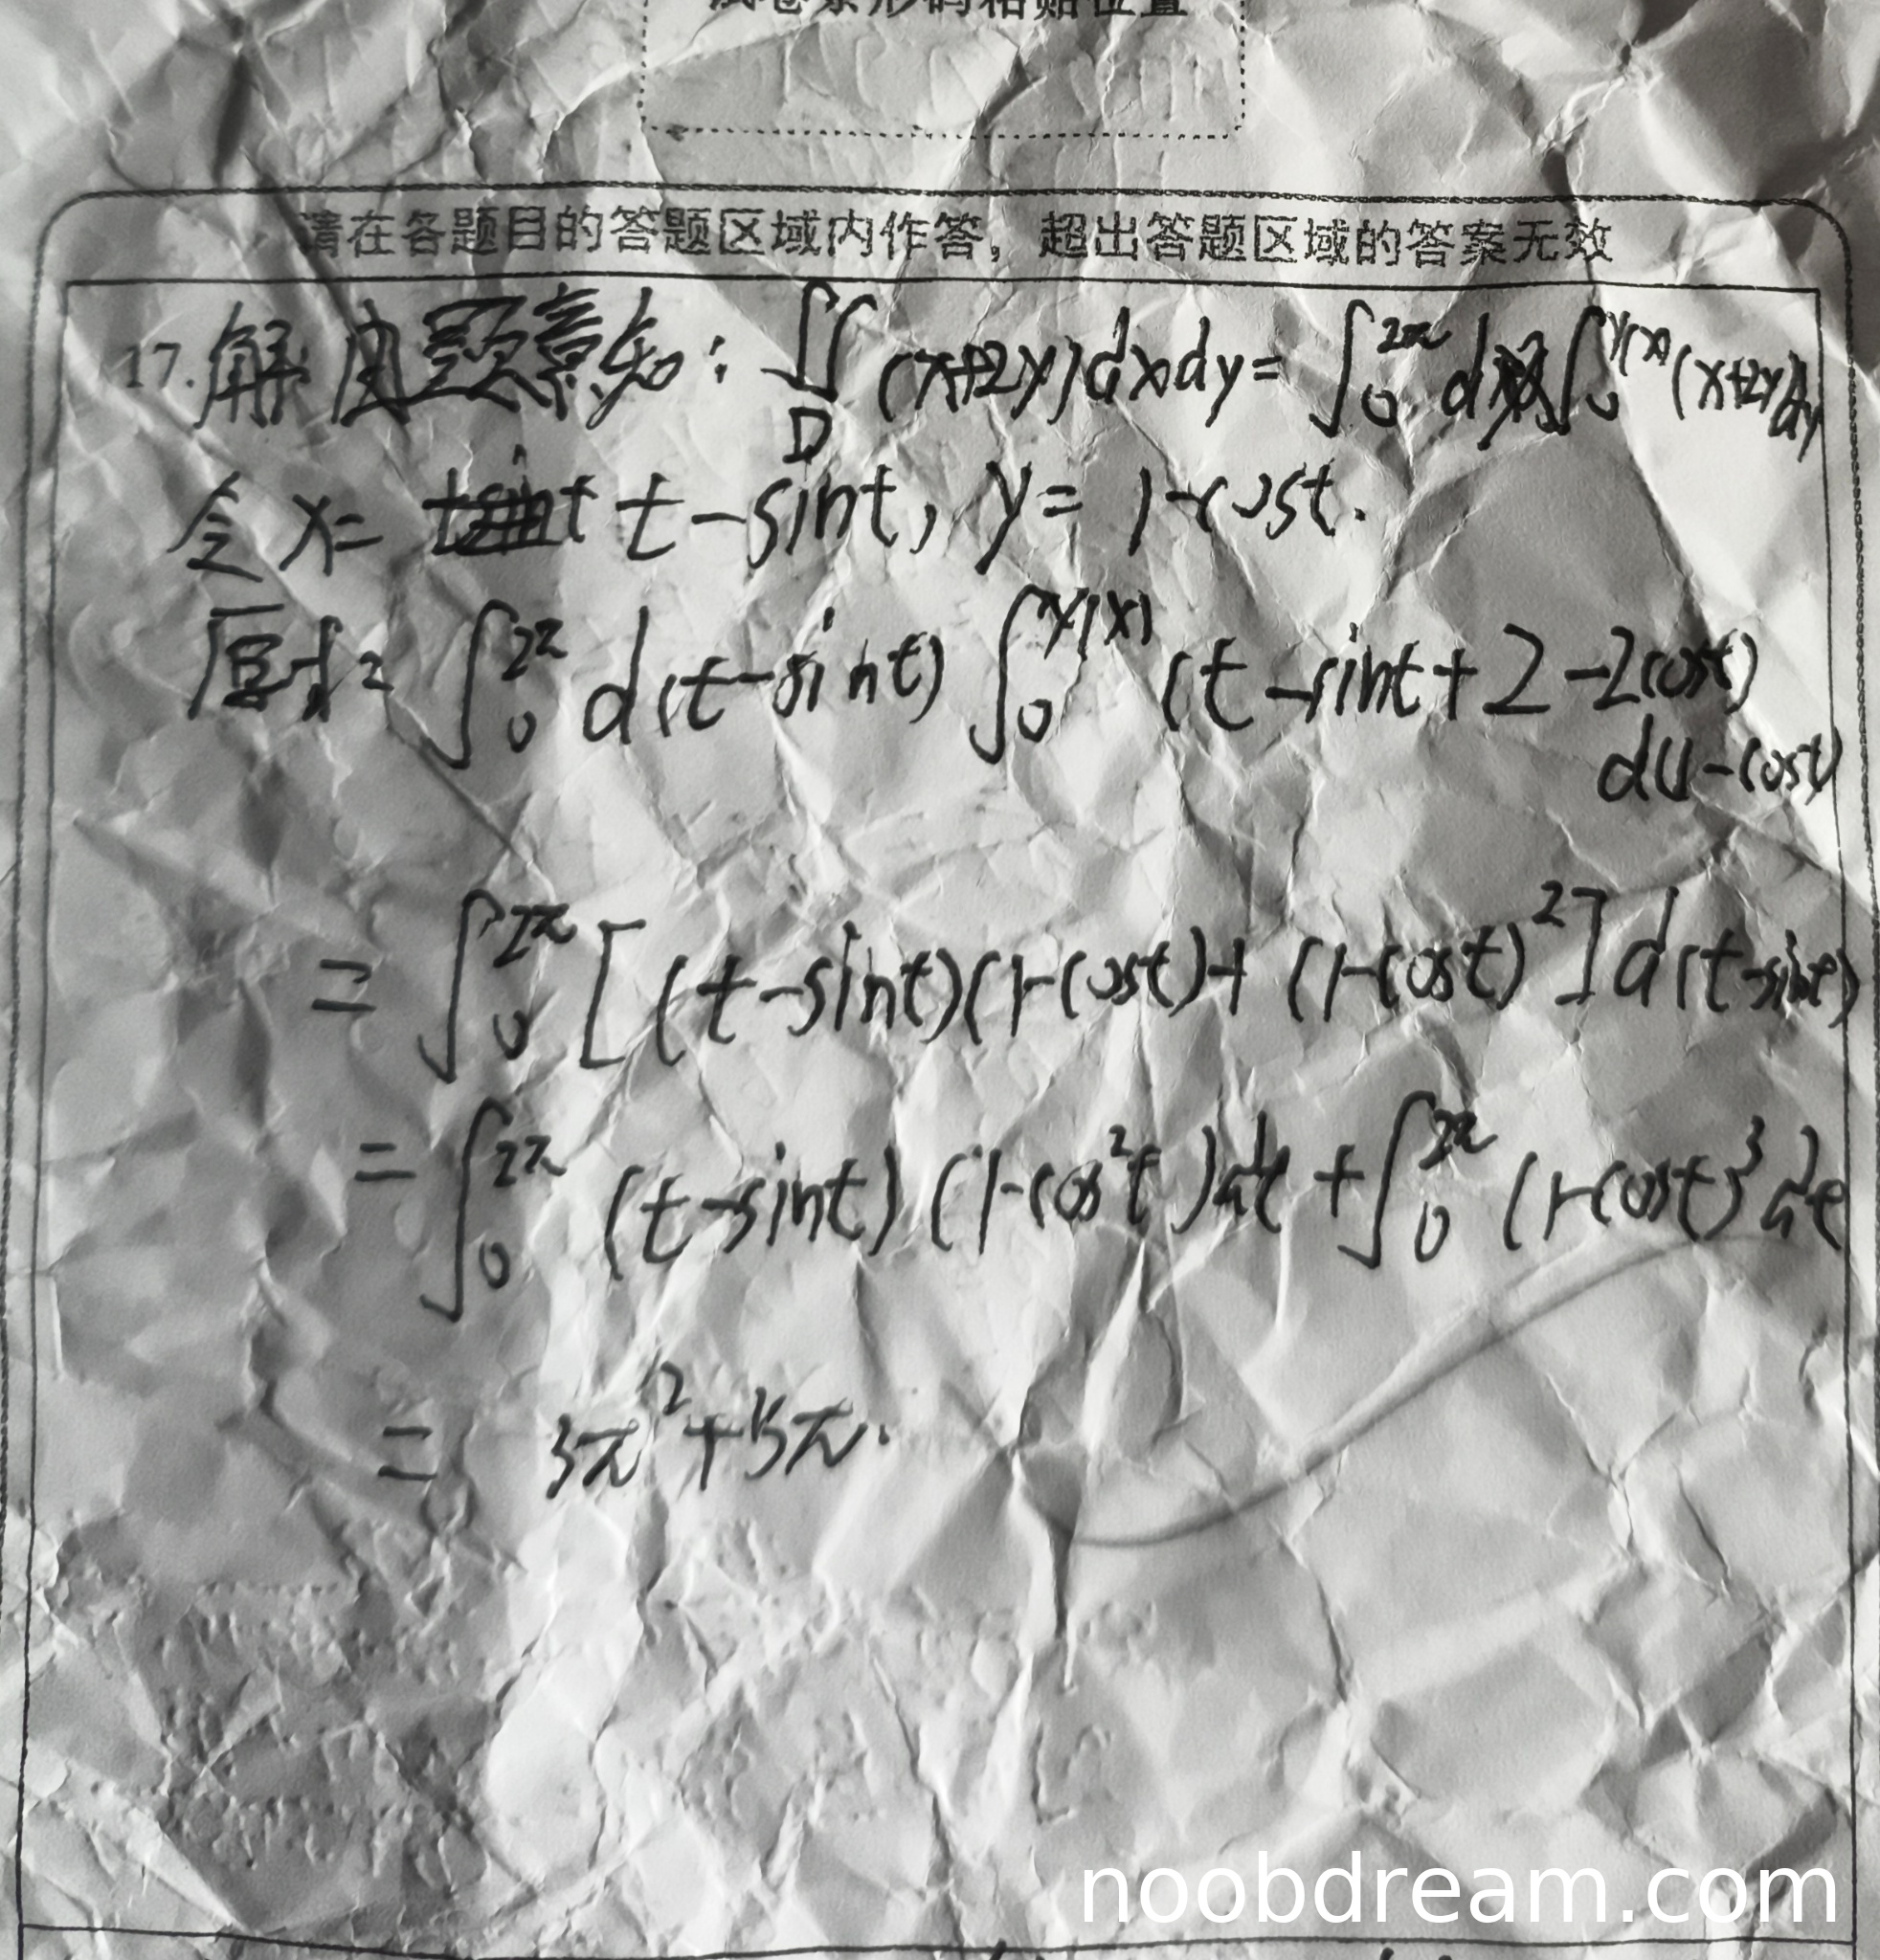 试卷条形码粘贴位置
请在各题目的答题区域内作答，超出答题区域的答案无效
17. 解 由题意知: ∬_D (x+2y)dxdy = ∫_0^{2π} dx ∫_0^{y(x)} (x+2y)dy
令 x = t-sint, y = 1-cost.
原式= ∫_0^{2π} d(t-sint) ∫_0^{y(x)} (t-sint+2-2cost)
d(1-cost)
= ∫_0^{2π} [(t-sint)(1-cost)+(1-cost)^2] d(t-sint)
= ∫_0^{2π} (t-sint)(1-cos^2t)dt + ∫_0^{2π} (1-cost)^3 dt
= 3π^2+5π.
noobdream.com